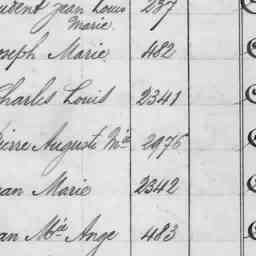 udent Jean Louis 237
Marie
oseph Marie 482
Charles Louis 2341
ierre Auguste Mie 2976
ean Marie 2342
an Mie Ange 483